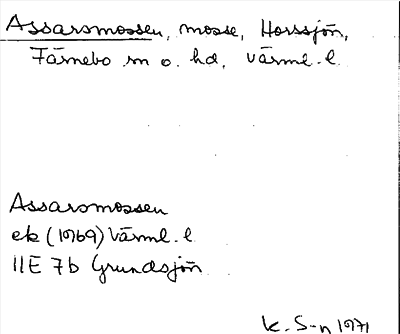 Assarsmossen, mosse, Horssjön,
Färnebo sn o. hd, Värml. l.
Assarsmossen
ek (1969) Värml. l
11E 7b Grundsjön
K. S-n 1971